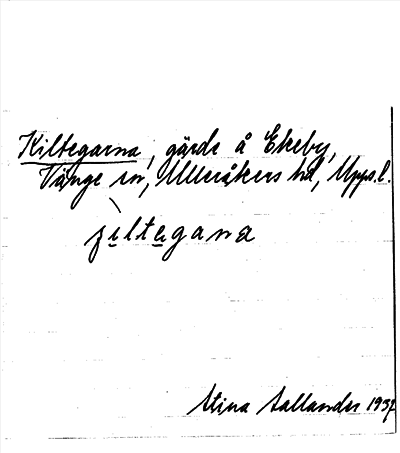 Kiltegarna, gärde å Ekeby,
Vänge sn, Ulleråkers hd, Upps.l.
jiltegana
Stina Sallander 1937